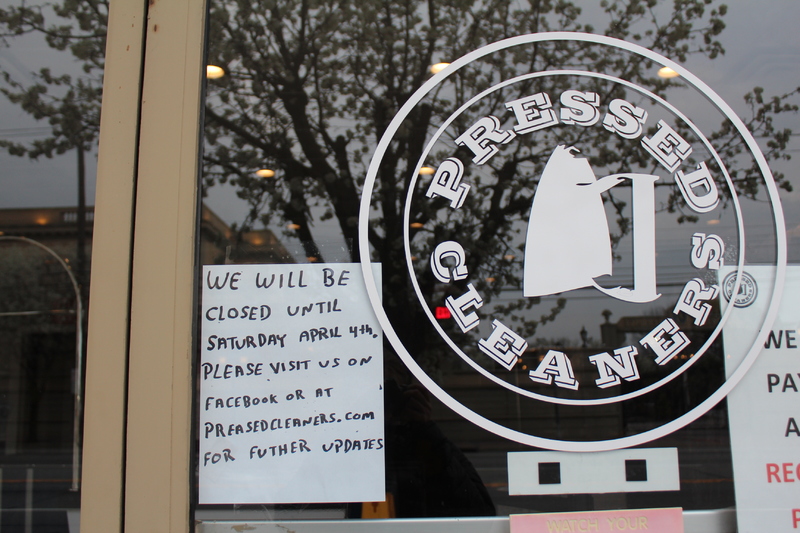 PRESSED
CLEANERS
WE WILL BE
CLOSED UNTIL
SATURDAY APRIL 4th.
PLEASE VISIT US ON
FACEBOOK OR AT
PREASEDCLEANERS.COM
FOR FUTHER UPDATES
WATCH YOUR
WE
PAY
A
REC
P